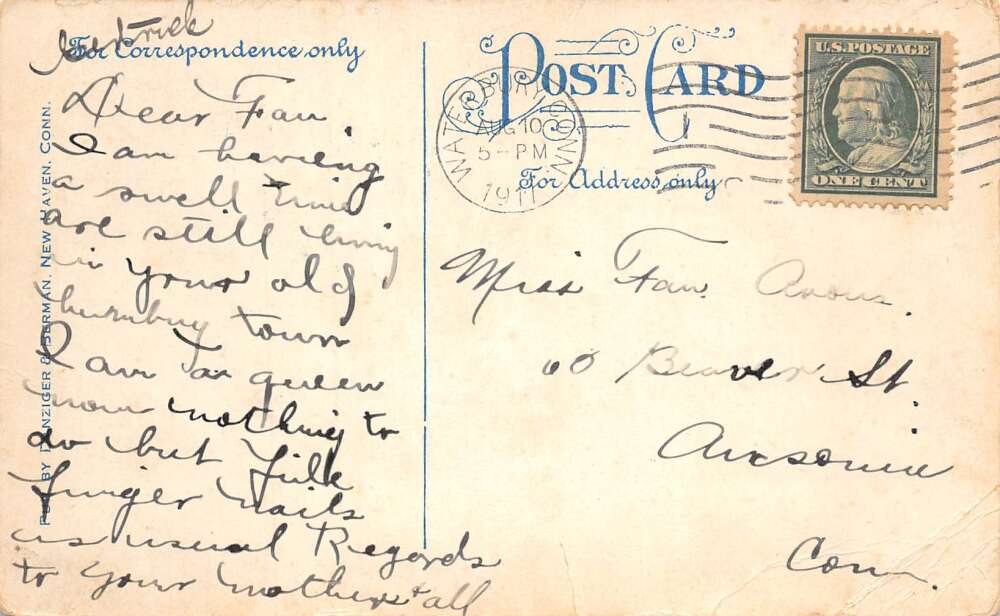 For Correspondence only
Dear Fan,
I am having
a swell time
are still living
in your old
humbug town
I am a queen
now nothing to
do but file
finger nails
as usual Regards
to your mother & all
PUB. BY DANZIGER & BERMAN, NEW HAVEN, CONN.
POST CARD
WATERBURY CONN.
AUG 10
5-PM
1911
U.S. POSTAGE
ONE CENT
For Address only
Miss Fan
60 Beaver St.
Ansonia
Conn.